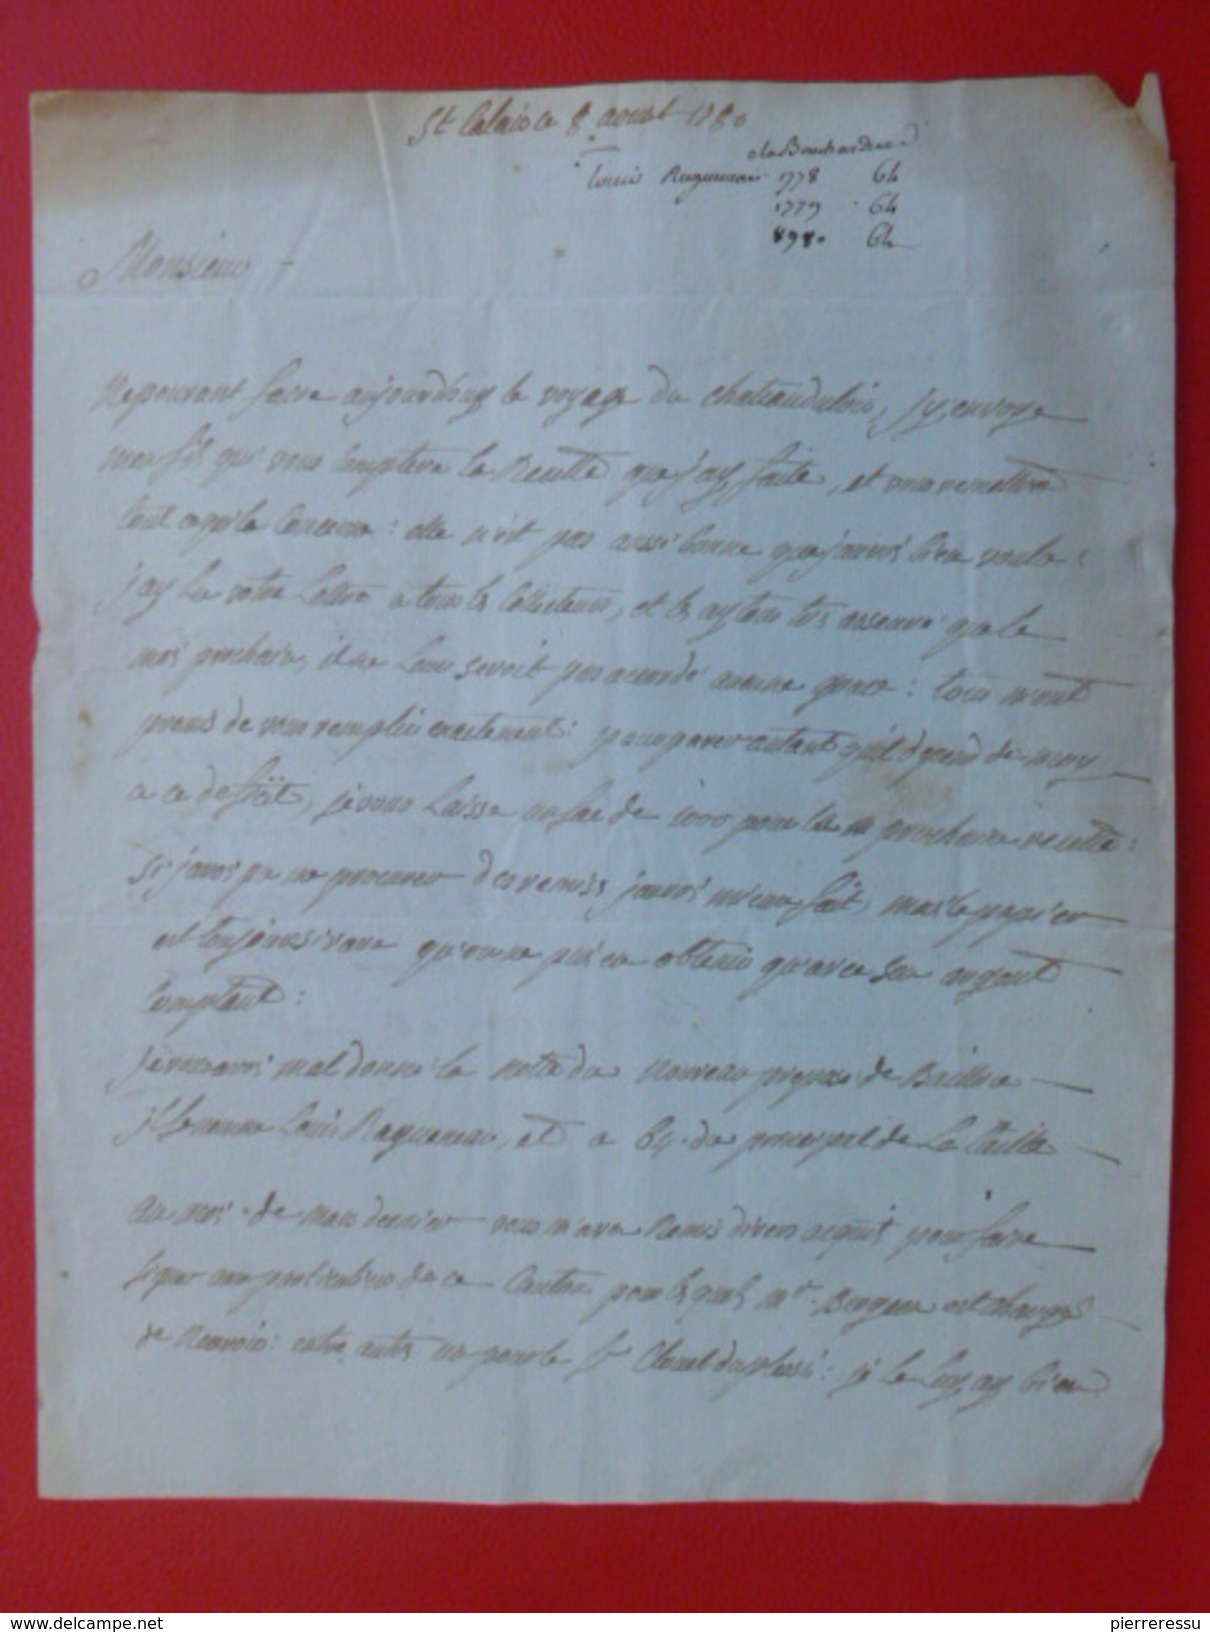 St Calais ce 8 aoust 1780
a la Bouchardiere
Louis Ragueneau 1778 64
1779 64
1780 64
Monsieur
Ne pouvant faire aujourdhuy le voyage du chateauduloir, j'y envoye
mon fils qui vous comptera la Recette que j'ay faite, et vous remettra
tout ce qui la concerne : elle n'est pas aussi bonne que j'aurois bien voulu :
j'ay lu votre lettre a tous les Collecteurs, et les ay tous très asseuré que le
mois prochain, il ne leur seroit pas accordé aucune grace : tous m'ont
promis de vous remplir exactement : pour parer autant qu'il depend de moy
a ce deficit, je vous laisse un sac de 1000 pour la prochaine recette :
si j'avois pu me procurer des remises j'aurois mieux fait, mais le papier
est toujours si rare qu'on ne puis en obtenir qu'avec son argent
comptant :
Je vous avois mal donné la notte du nouveau préposé de
il se nomme Louis Ragueneau, et a 64 du principal de la Taille
au mois de mars dernier vous m'avez remis divers acquits pour faire
signer aux particuliers de ce Canton pour lesquels mr. est chargé
de Recevoir : entre autres un pour le Sr Clouet duplessis : je le luy ay bien
pierreressu
www.delcampe.net